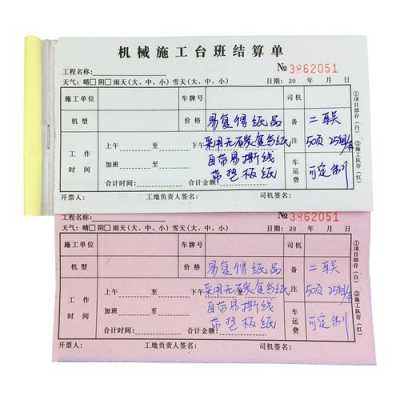 机械施工台班结算单
№ 3962051
工程名称:
天气: 晴 阴 雨天(大、中、小) 雪天(大、中、小) 日期: 20 年 月 日
施工单位 车牌号 司机
机型 价格 易复得纸品 备注 二联
工作时间 上午 至 下午 至 采用无碳复写纸 50页 25组/本
加班 至 自带易撕线 车运费 可定制
合计时间: 合计金额: 带垫板纸
开票人: 工地负责人签名: 司机签名:
①项目部存(白) ②施工队存(红)
№ 3962051
工程名称:
天气: 晴 阴 雨天(大、中、小) 雪天(大、中、小) 日期: 20 年 月 日
施工单位 车牌号 司机
机型 价格 易复得纸品 备注 二联
工作时间 上午 至 下午 至 采用无碳复写纸 50页
加班 至 自带易撕线 车运费 可定制
合计时间: 合计金额: 带垫板纸
开票人: 工地负责人签名: 司机签名:
①项目部存(白) ②施工队存(红)